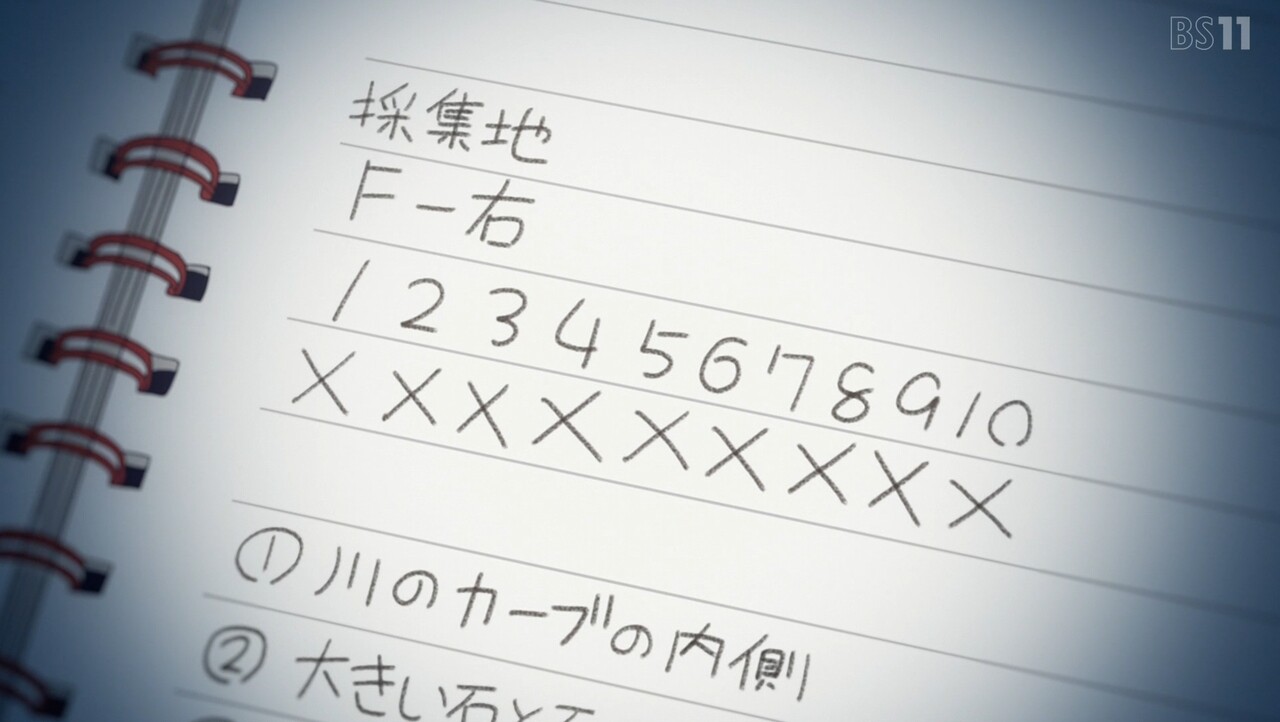 BS11
採集地
F-右
1 2 3 4 5 6 7 8 9 10
× × × × × × × × ×
① 川のカーブの内側
② 大きい石と